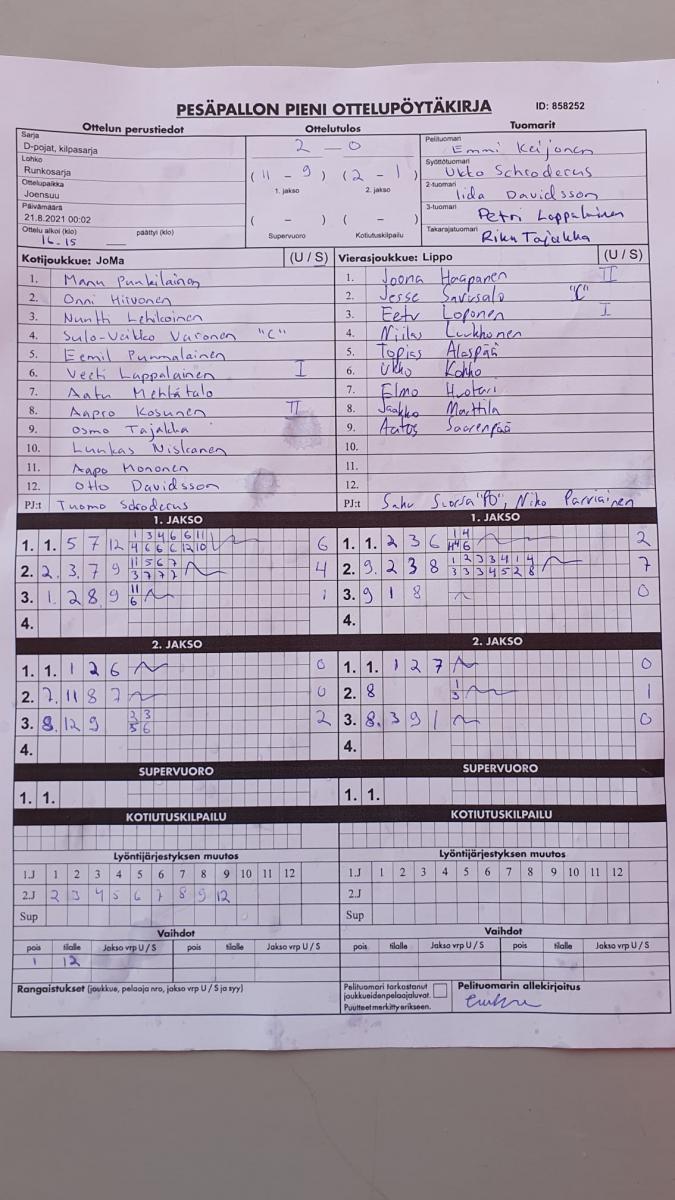 PESÄPALLON PIENI OTTELUPÖYTÄKIRJA
ID: 858252
Ottelun perustiedot
Sarja
D-pojat, kilpasarja
Lohko
Runkosarja
Ottelupaikka
Joensuu
Päivämäärä
21.8.2021 00:02
Ottelu alkoi (klo) päättyi (klo)
16.15
Ottelutulos
2 - 0
(11 - 9) (2 - 1)
1. jakso 2. jakso
( - ) ( - )
Supervuoro Kotiutuskilpailu
Tuomarit
Pelituomari
Emmi Keijonen
Syöttötuomari
Ukko Schroderus
2-tuomari
Iida Davidsson
3-tuomari
Petri Lappalainen
Takarajatuomari
Riku Tajakka
Kotijoukkue: JoMa (U / S)
1. Manu Punkilainen
2. Onni Hirvonen
3. Nuutti Lehikoinen
4. Sulo-Veikko Varonen "C"
5. Eemil Purmalainen
6. Veeti Lappalainen I
7. Aatu Mehtätalo
8. Aapro Kosunen II
9. Osmo Tajakka
10. Luukas Niskanen
11. Aapo Mononen
12. Otto Davidsson
PJ:t Tuomo Schroderus
Vierasjoukkue: Lippo (U / S)
1. Joona Haapanen II
2. Jesse Savusalo "C"
3. Eetu Loponen I
4. Niilas Luukkonen
5. Topias Alaspää
6. Ukko Kohko
7. Elmo Huotari
8. Jaakko Marttila
9. Aatos Saarenpää
10.
11.
12.
PJ:t Saku Suorsa "PO", Niko Parviainen
1. JAKSO
1. 1. 5 7 12 1 3 4 6 6 11 6
4 6 6 6 12 10
2. 2. 3. 7 9 11 5 6 7 4
3 7 7 7
3. 1. 2 8. 9 11 1
6
4.
1. JAKSO
1. 1. 2 3 6 1 4 2
4 6
2. 9. 2 3 8 1 2 3 3 4 1 4 7
3 3 3 4 5 2 8
3. 9 1 8 0
4.
2. JAKSO
1. 1. 1 2 6 0
2. 7. 11 8 7 0
3. 8. 12 9 2 3 2
5 6
4.
2. JAKSO
1. 1. 1 2 7 0
2. 8 1 1
3
3. 8. 3 9 1 0
4.
SUPERVUORO
1. 1.
SUPERVUORO
1. 1.
KOTIUTUSKILPAILU
KOTIUTUSKILPAILU
Lyöntijärjestyksen muutos
1.J 1 2 3 4 5 6 7 8 9 10 11 12
2.J 2 3 4 5 6 7 8 9 12
Sup
Lyöntijärjestyksen muutos
1.J 1 2 3 4 5 6 7 8 9 10 11 12
2.J
Sup
Vaihdot
pois tilalle Jakso vrp U / S pois tilalle Jakso vrp U / S
1 12
Vaihdot
pois tilalle Jakso vrp U / S pois tilalle Jakso vrp U / S
Rangaistukset (joukkue, pelaaja nro, jakso vrp U / S ja syy)
Pelituomari tarkastanut
joukkueiden pelaajaluvat.
Puutteet merkitty erikseen.
Pelituomarin allekirjoitus